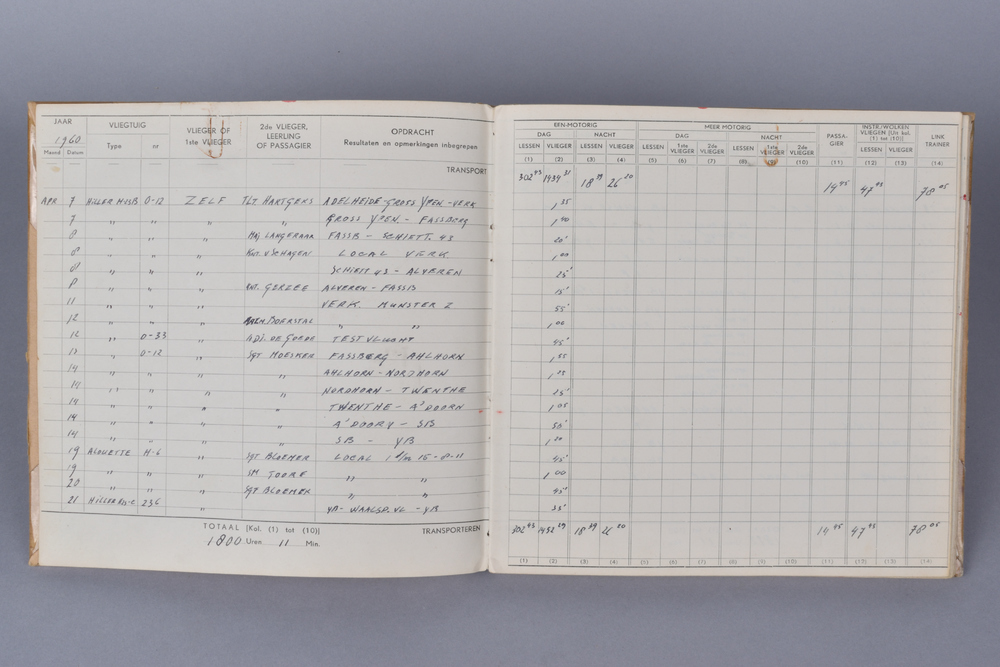 JAAR VLIEGTUIG VLIEGER OF 1ste VLIEGER 2de VLIEGER, LEERLING OF PASSAGIER OPDRACHT
1960 Type nr Resultaten en opmerkingen inbegrepen
Maand Datum
TRANSPORT
APR 7 HILLER MUSB O-12 ZELF TLT HARTGERS ADELHEIDE-GROSS YPEN-VERK
7 " " " " GROSS YPEN - FASSBERG
8 " " " MAJ LANGERAAR FASSB - SCHIETT. 43
8 " " " KNT. V SCHAGEN LOCAL VERK
8 " " " SCHIETT 43 - ALVEREN
8 " " " KNT. GERLEE ALVEREN - FASSB
11 " " " VERK. MUNSTER 2
12 " " " BOERSTAL " "
12 " O-33 " ADJ. DE GOEDE TESTVLUCHT
13 " O-12 " SGT MOESKER FASSBERG - AHLHORN
14 " " " " AHLHORN - NORDHORN
14 " " " " NORDHORN - TWENTHE
14 " " " " TWENTHE - A'DOORN
14 " " " " A'DOORN - SB
14 " " " " SB - YB
19 ALOUETTE H-6 " SGT BLOEMER LOCAL 1 t/m 15-8-11
19 " " " SM TOORE " "
20 " " " SGT BLOEMER " "
21 HILLER 236 " YB - WAALSD. VL - YB
TOTAAL [Kol. (1) tot (10)] TRANSPORTEREN
1800 Uren 11 Min.
EEN-MOTORIG MEER MOTORIG PASSA-GIER INSTR./WOLKEN VLIEGEN [Uit kol. (1) tot (10)] LINK TRAINER
DAG NACHT DAG NACHT
LESSEN VLIEGER LESSEN VLIEGER LESSEN 1ste VLIEGER 2de VLIEGER LESSEN 1ste VLIEGER 2de VLIEGER LESSEN VLIEGER
(1) (2) (3) (4) (5) (6) (7) (8) (9) (10) (11) (12) (13) (14)
302 43 1434 18 39 26 20 14 45 47 45 78 05
1 35
1 40
20'
1 00
25'
15'
55'
1 00
45'
1 55
1
25'
1 05
50'
1 20
45'
1 00
45'
35'
302 43 1452 29 18 39 26 20 14 45 47 45 78 05
(1) (2) (3) (4) (5) (6) (7) (8) (9) (10) (11) (12) (13) (14)